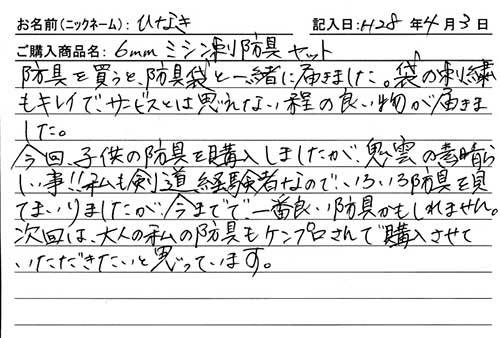 お名前(ニックネーム): ひなき 記入日:H28年4月3日
ご購入商品名: 6mmミシン刺防具セット
防具を買うと、防具袋と一緒に届きました。袋の刺繍
もキレイで、サービスとは思えない程の良い物が届きま
した。
今回、子供の防具を購入しましたが、鬼雲の素晴ら
しい事!!私も剣道経験者なので、いろいろ防具を見
てまいりましたが、今までで、一番良い防具かもしれません。
次回は、大人の私の防具もケンプロさんで購入させて
いただきたいと思っています。